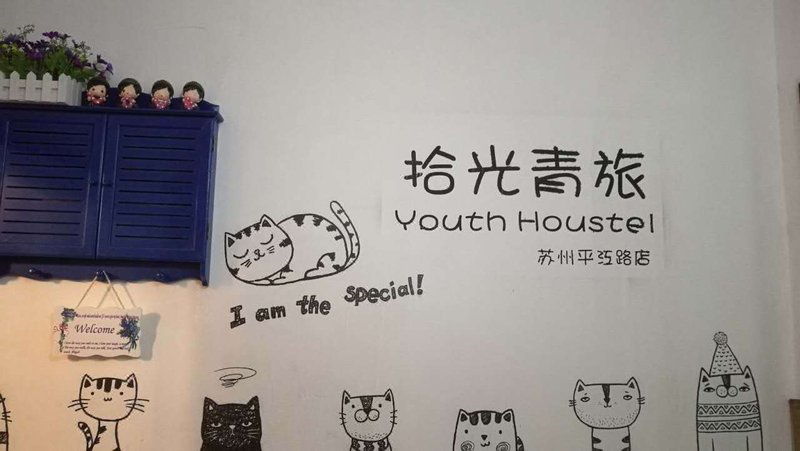 拾光青旅
Youth Houstel
苏州平江路店
I am the special!
Welcome